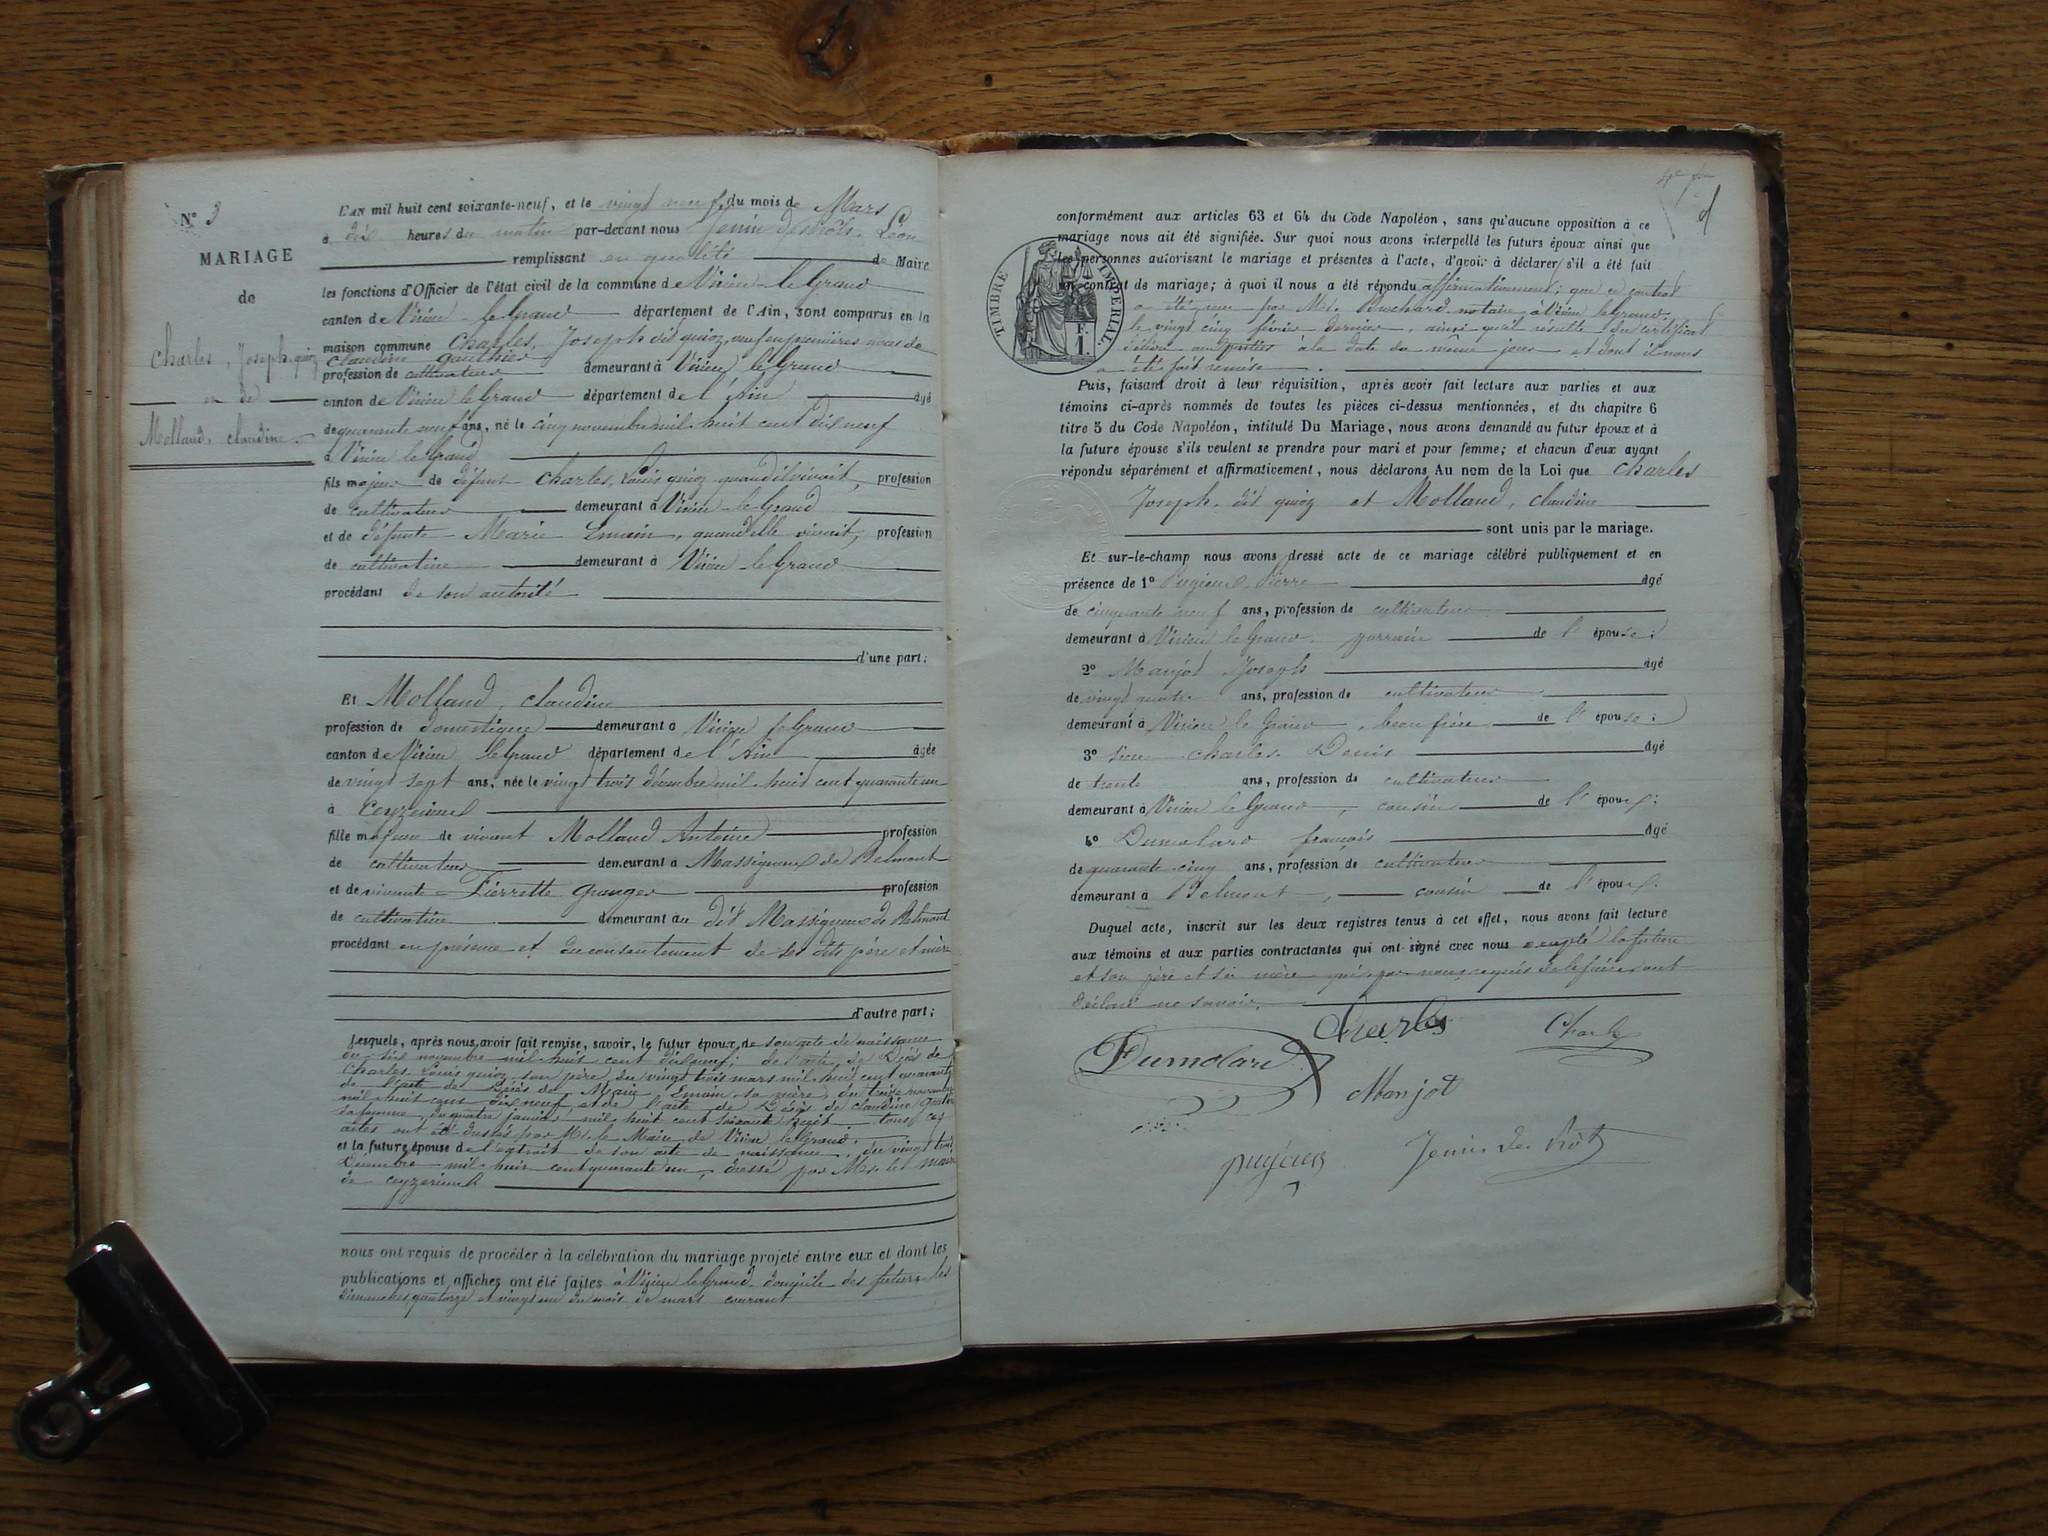 N° 3
MARIAGE
de
Charles, Joseph, quioz
et de
Molland, claudine
L'AN mil huit cent soixante-neuf, et le vingt neuf du mois de Mars
à dix heures du matin par-devant nous Jenin Desprôts, Léon
remplissant en qualité de Maire
les fonctions d'Officier de l'état civil de la commune de Virieu le Grand
canton de Virieu le Grand département de l'Ain, sont comparus en la
maison commune Charles, Joseph dit quioz, veuf en premières noces de
Claudine gauthier
profession de cultivateur demeurant à Virieu le Grand
canton de Virieu le Grand département de l'Ain âgé
de quarante neuf ans, né le cinq novembre mil huit cent dix neuf
à Virieu le Grand
fils majeur de défunt Charles, Louis quioz quand il vivait, profession
de cultivateur demeurant à Virieu le Grand
et de défunte Marie quand elle vivait, profession
de cultivatrice demeurant à Virieu le Grand
procédant de son autorité
d'une part;
Et Molland, claudine
profession de domestique demeurant à Virieu le Grand
canton de Virieu le Grand département de l'Ain âgée
de vingt sept ans, née le vingt trois décembre mil huit cent quarante un
à Ceyzerieux
fille majeure de vivant Molland Antoine profession
de cultivateur demeurant à Massignieux de Belmont
et de vivante Pierrette Granger profession
de cultivatrice demeurant au dit Massignieux de Belmont
procédant en présence et du consentement de ses dits père et mère
d'autre part;
Lesquels, après nous avoir fait remise, savoir, le futur époux, de son acte de naissance
du six novembre mil huit cent dix neuf; de l'acte de Décès de
Charles Louis quioz son père du vingt trois mars mil huit cent quarante
de l'acte de Décès de Marie sa mère, du treize novembre
mil huit cent dix neuf, et de l'acte de Décès de claudine
sa femme, du quatre janvier mil huit cent soixante sept tous ces
actes ont été dressés par Mr. le Maire de Virieu le Grand;
et la future épouse de l'extrait de son acte de naissance, du vingt trois
Décembre mil huit cent quarante un, dressé par Mr. le maire
de ceyzerieux
nous ont requis de procéder à la célébration du mariage projeté entre eux et dont les
publications et affiches ont été faites à Virieu le Grand domicile des futurs les
dimanches quatorze et vingt un du mois de mars courant
conformément aux articles 63 et 64 du Code Napoléon, sans qu'aucune opposition à ce
mariage nous ait été signifiée. Sur quoi nous avons interpellé les futurs époux ainsi que
les personnes autorisant le mariage et présentes à l'acte, d'avoir à déclarer s'il a été fait
un contrat de mariage; à quoi il nous a été répondu affirmativement; que ce contrat
a été reçu par Me. Buchard notaire à Virieu le Grand
le vingt cinq février dernier, ainsi qu'il résulte du certificat
délivré aux parties à la date du même jour et dont il nous
a été fait remise.
TIMBRE IMPERIAL
1 F.
Puis, faisant droit à leur réquisition, après avoir fait lecture aux parties et aux
témoins ci-après nommés de toutes les pièces ci-dessus mentionnées, et du chapitre 6
titre 5 du Code Napoléon, intitulé Du Mariage, nous avons demandé au futur époux et à
la future épouse s'ils veulent se prendre pour mari et pour femme; et chacun d'eux ayant
répondu séparément et affirmativement, nous déclarons Au nom de la Loi que Charles
Joseph, dit quioz et Molland, claudine
sont unis par le mariage.
Et sur-le-champ nous avons dressé acte de ce mariage célébré publiquement et en
présence de 1° Pugieux, Pierre âgé
de cinquante neuf ans, profession de cultivateur
demeurant à Virieu le Grand, parrain de l'épouse;
2° Manjot Joseph âgé
de vingt quatre ans, profession de cultivateur
demeurant à Virieu le Grand, beau frère de l'épouse;
3° sieur Charles Denis âgé
de trente ans, profession de cultivateur
demeurant à Virieu le Grand, cousin de l'époux;
4° Dumolard françois âgé
de quarante cinq ans, profession de cultivateur
demeurant à Belmont, cousin de l'époux.
Duquel acte, inscrit sur les deux registres tenus à cet effet, nous avons fait lecture
aux témoins et aux parties contractantes qui ont signé avec nous excepté la future
et son père et sa mère qui, par nous requis de le faire, ont
déclaré ne savoir.
Charles
Charles
Dumolard
Manjot
pugieux
Jenin des Prôts